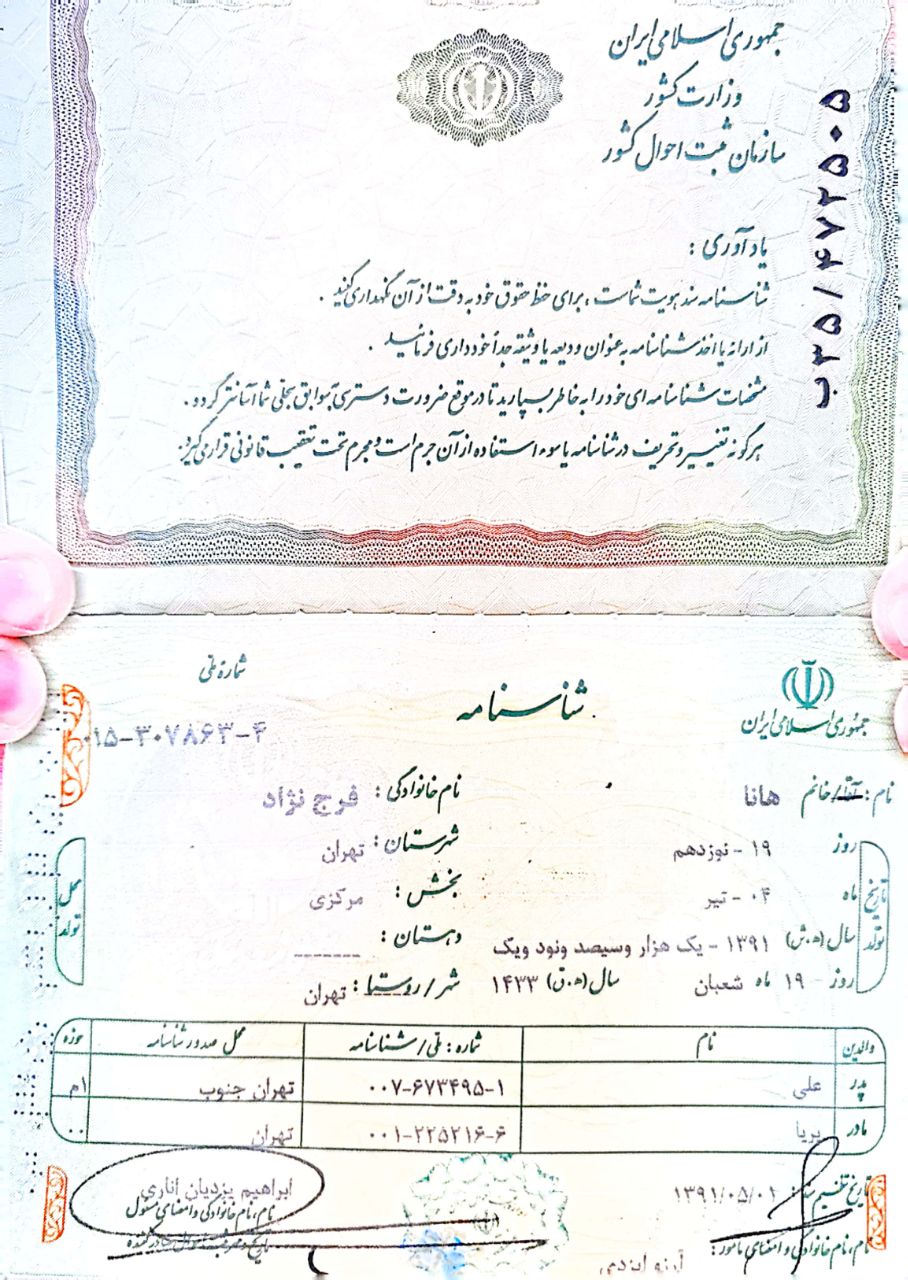 جمهوری اسلامی ایران
وزارت کشور
سازمان ثبت احوال کشور
ب۳۵/۴۷۲۵۰۵
یادآوری :
شناسنامه سند هویت شماست ، برای حفظ حقوق خود به دقت از آن نگهداری کنید .
از ارائه یا اخذ شناسنامه به عنوان ودیعه یا وثیقه جداً خودداری فرمائید .
مشخصات شناسنامه ای خود را به خاطر بسپارید تا در موقع ضرورت دسترسی به سوابق سجلی شما آسانتر گردد .
هرگونه تغییر و تحریف در شناسنامه یا سوء استفاده از آن جرم است و مجرم تحت تعقیب قانونی قرار می گیرد .
جمهوری اسلامی ایران
شناسنامه
شماره ملی
۰۱۵-۳۰۷۸۶۳-۴
نام : آقا/خانم هانا
نام خانوادگی : فرج نژاد
تاریخ تولد
روز ۱۹ - نوزدهم
ماه ۰۴ - تیر
سال (ه.ش) ۱۳۹۱ - یک هزار وسیصد ونود ویک
روز - ۱۹ ماه شعبان سال (ه.ق) ۱۴۳۳
محل تولد
شهرستان : تهران
بخش : مرکزی
دهستان : -------
شهر/روستا : تهران
والدین نام شماره : ملی/شناسنامه محل صدور شناسنامه حوزه
پدر علی ۰۰۷-۶۷۳۴۹۵-۱ تهران جنوب ام
مادر پریا ۰۰۱-۲۲۵۲۱۶-۶ تهران ۰۰
تاریخ تنظیم سند : ۱۳۹۱/۰۵/۰۱
نام ، نام خانوادگی و امضای مامور : آرزو ایزدی
ابراهیم یزدیان اناری
نام ، نام خانوادگی و امضای مسئول